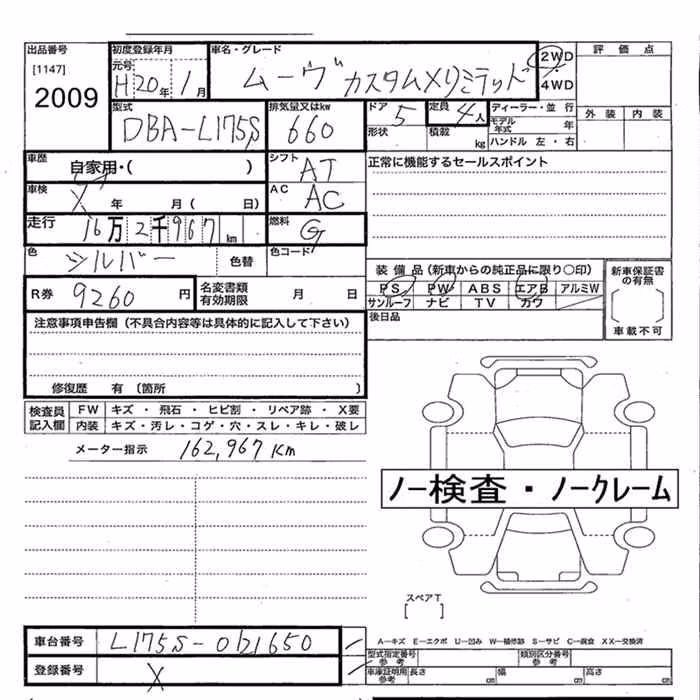 出品番号 初度登録年月 車名・グレード 評価点
[1147] 元号 H20年 1月 ムーヴ カスタムXリミテッド 2WD・4WD
2009 外装 内装
型式 排気量又はkw ドア 5 定員 4人 ディーラー・並行
DBA-L175S 660 形状 積載 kg モデル年式 年
ハンドル 左・右
車歴 自家用・( ) シフト AT 正常に機能するセールスポイント
車検 X 年 月( 日) AC AC
走行 16万2千967km 燃料 G
色 シルバー 色替 色コード 装備品(新車からの純正品に限り○印) 新車保証書の有無
R券 9260円 名変書類有効期限 月 日 PS PW ABS エアB アルミW
サンルーフ ナビ TV カワ 車載不可
注意事項申告欄(不具合内容等は具体的に記入して下さい) 後日品
修復歴 有(箇所 )
検査員記入欄 FW キズ・飛石・ヒビ割・リペア跡・X要
内装 キズ・汚レ・コゲ・穴・スレ・キレ・破レ
メーター指示 162,967Km
ノー検査・ノークレーム
スペアT
[ ]
A—キズ E—エクボ U—凹み W—補修跡 S—サビ C—腐食 XX—交換済
車台番号 L175S-0121650 型式指定番号参考 類別区分番号参考
登録番号 X 車庫証明用参考 長さ cm 幅 cm 高さ cm